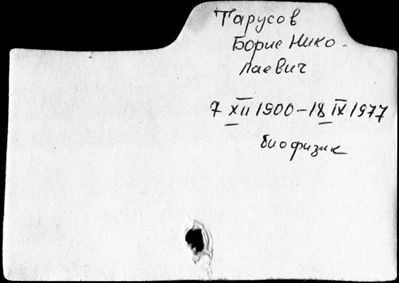 Тарусов
Борис Нико-
лаевич
7 XII 1900–18 IX 1977
биофизик